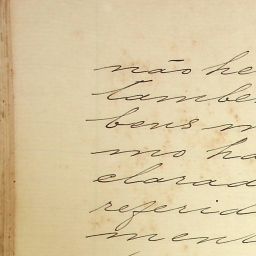 não he
tambe
bens n
mo ha
clarad
referid
ment